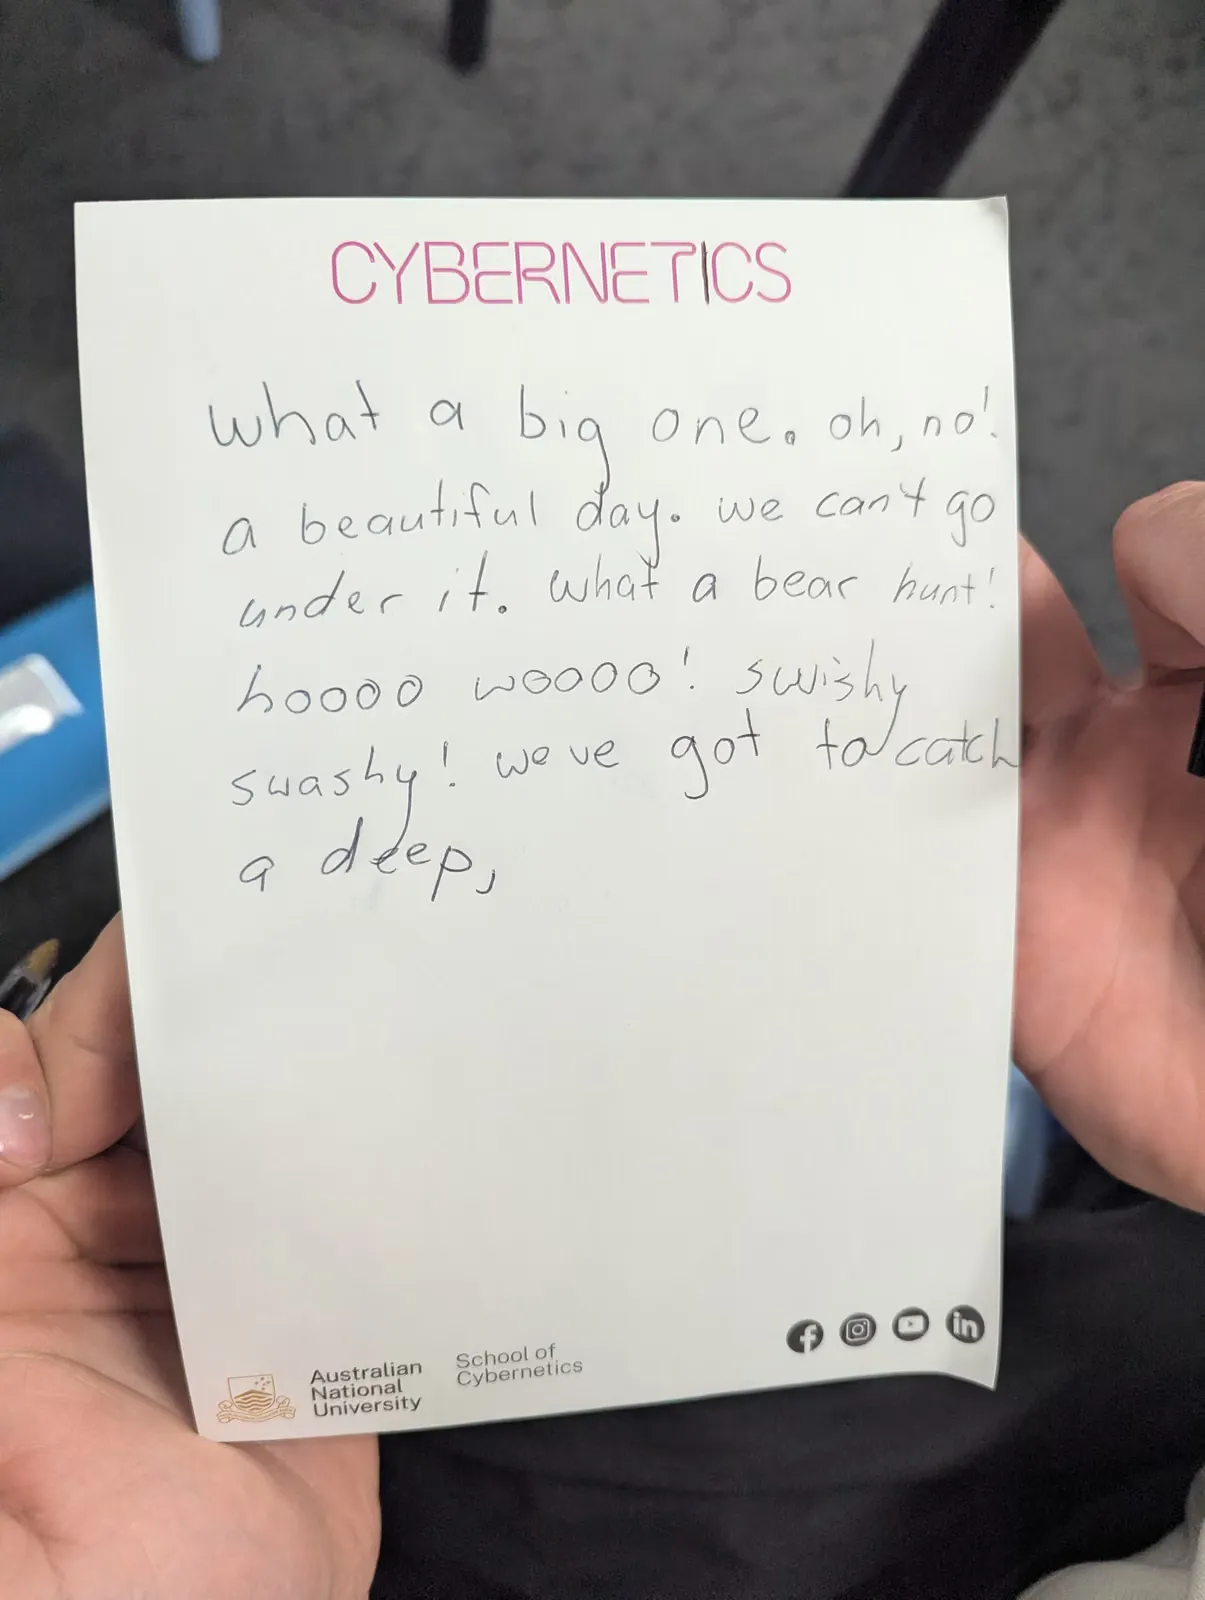 CYBERNETICS
what a big one. oh, no!
a beautiful day. we can't go
under it. what a bear hunt!
hoooo woooo! swishy
swashy! we've got to catch
a deep,
Australian
National
University
School of
Cybernetics